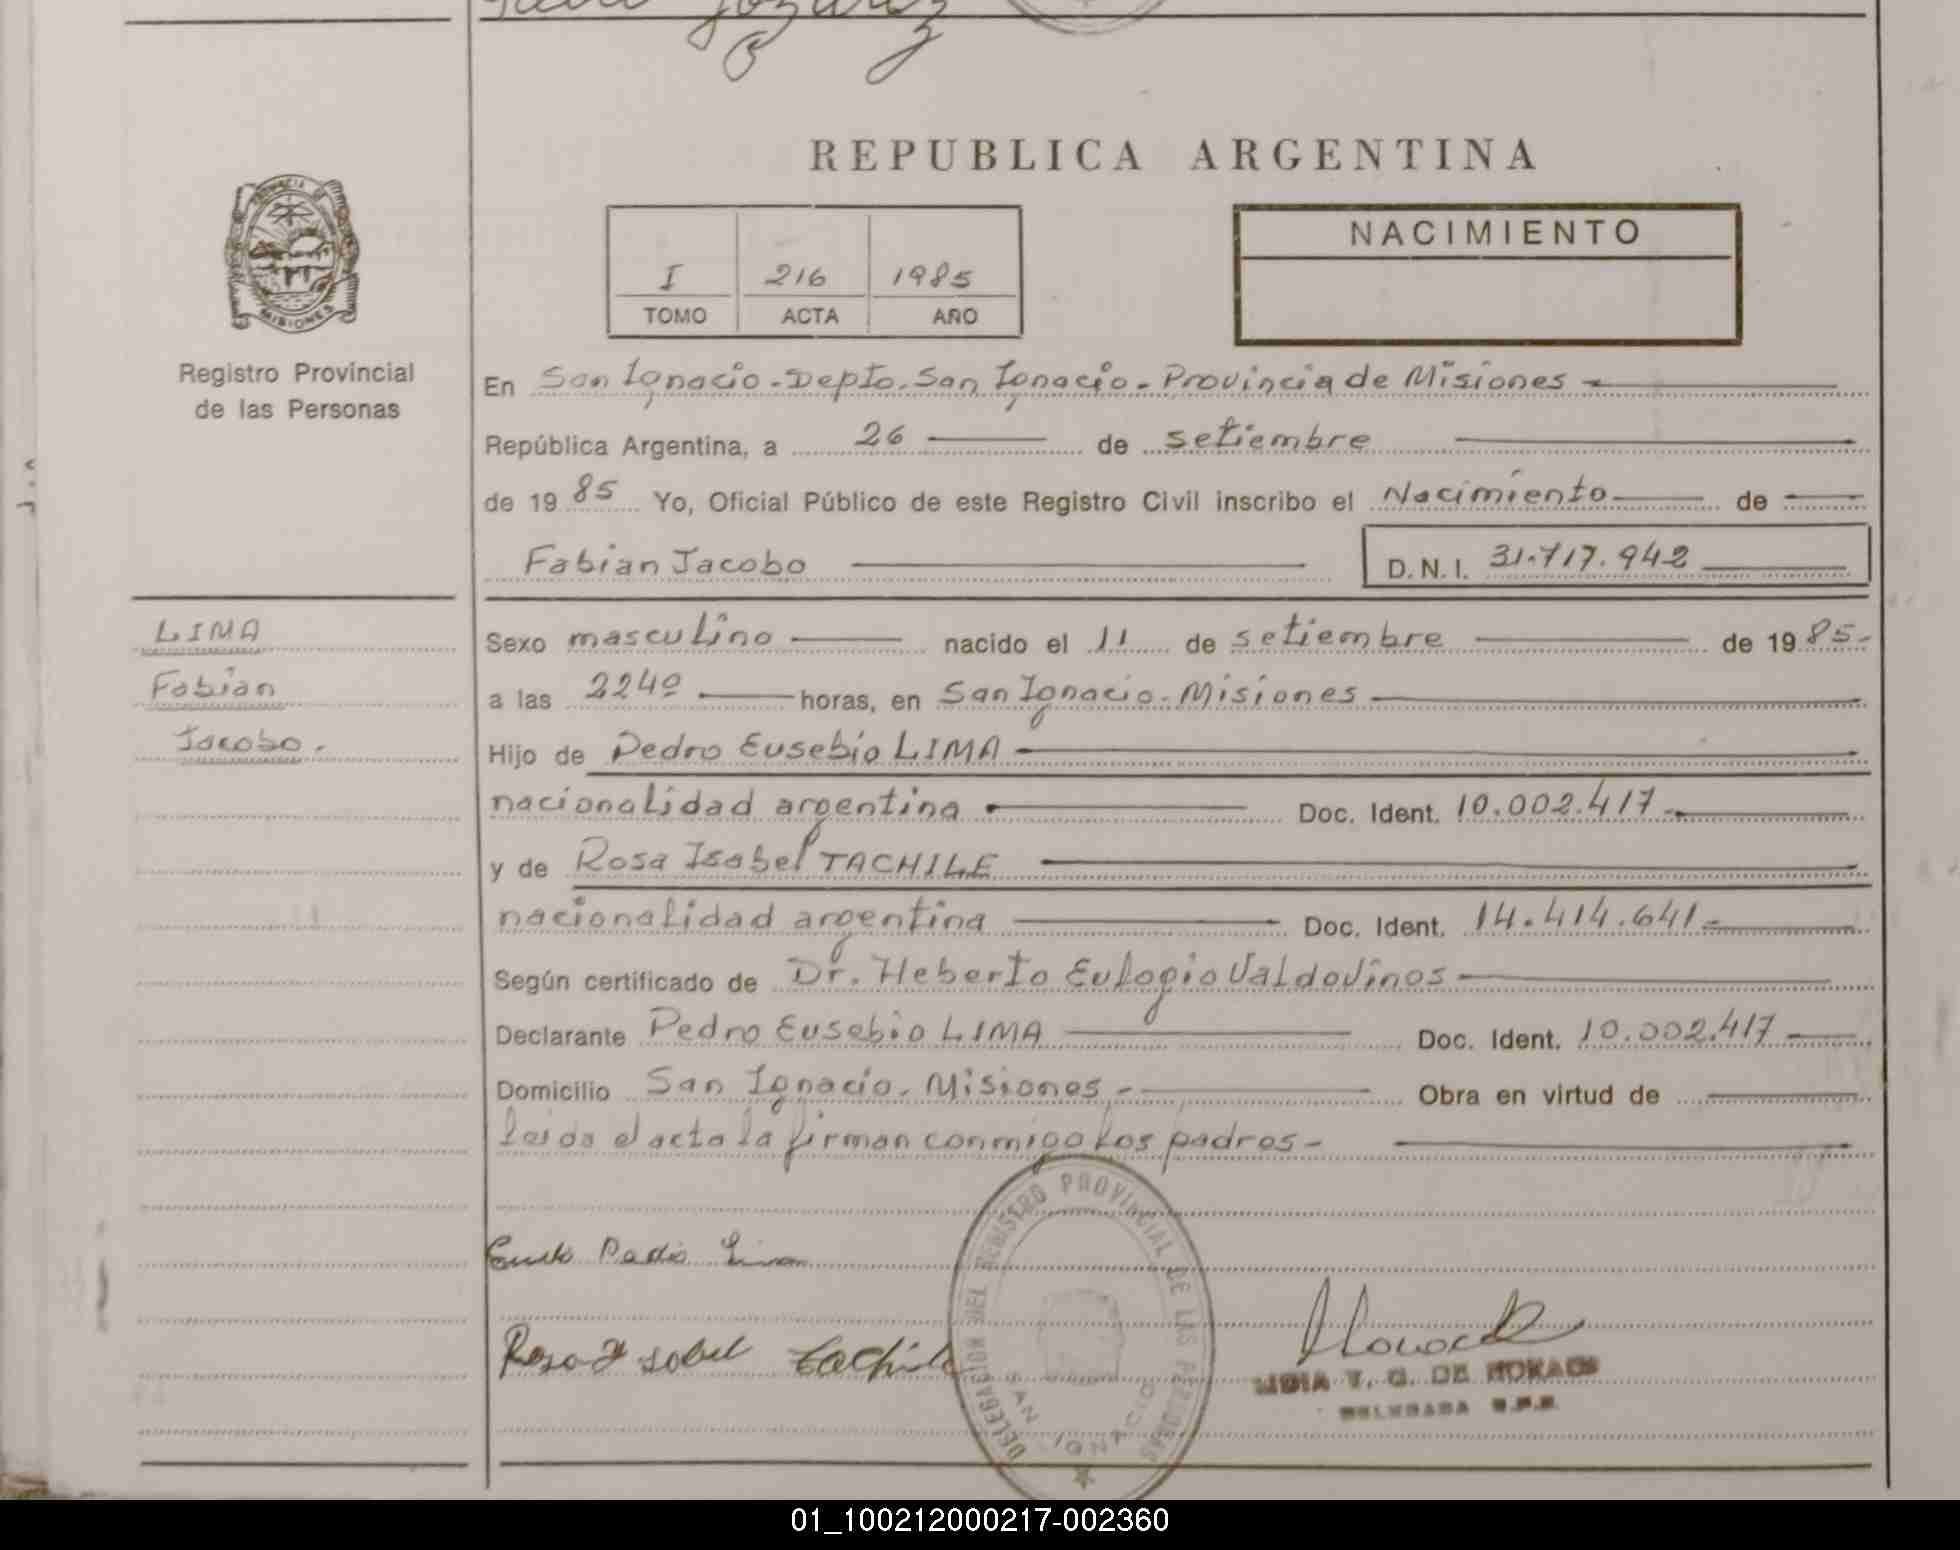 REPUBLICA ARGENTINA
PROVINCIA DE
MISIONES
Registro Provincial
de las Personas
I 216 1985
TOMO ACTA AÑO
NACIMIENTO
En San Ignacio - Depto. San Ignacio - Provincia de Misiones
República Argentina, a 26 de setiembre
de 1985 Yo, Oficial Público de este Registro Civil inscribo el Nacimiento de
Fabian Jacobo D.N.I. 31.717.942
LIMA
Fabian
Jacobo.
Sexo masculino nacido el 11 de setiembre de 1985-
a las 2240 horas, en San Ignacio - Misiones
Hijo de Pedro Eusebio LIMA
nacionalidad argentina Doc. Ident. 10.002.417-
y de Rosa Isabel TACHILE
nacionalidad argentina Doc. Ident. 14.414.641-
Según certificado de Dr. Heberto Eulogio Valdovinos
Declarante Pedro Eusebio LIMA Doc. Ident. 10.002.417
Domicilio San Ignacio - Misiones - Obra en virtud de
leida el acta la firman conmigo los padres-
Lima
Rosa Isabel Tachile
DELEGACION DEL REGISTRO PROVINCIAL DE LAS PERSONAS
SAN IGNACIO
LIDIA T. G. DE
DELEGADA
01_100212000217-002360